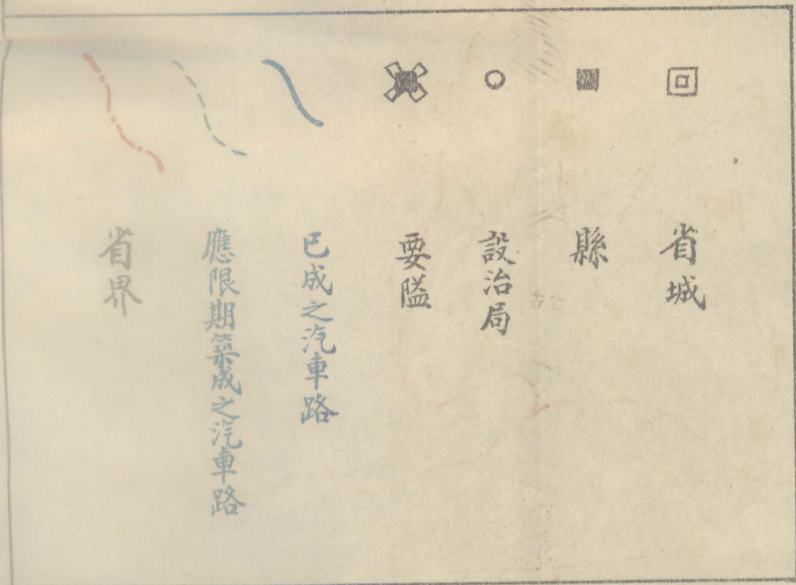 省城
縣
設治局
要隘
已成之汽車路
應限期築成之汽車路
省界